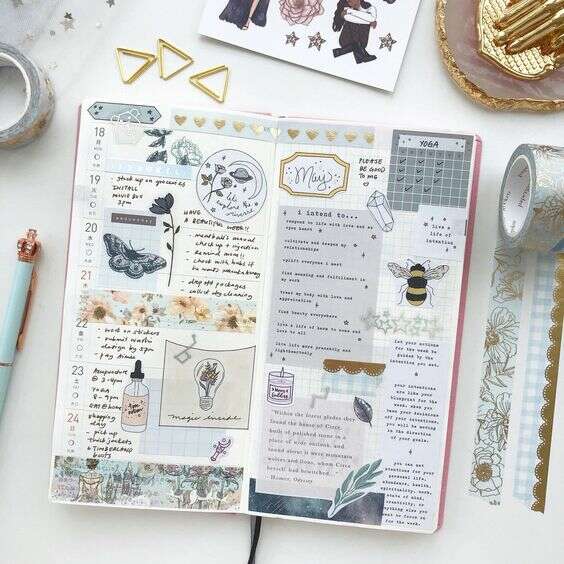 18
19
- stock up on groceries
INSTALL
MOVIE BUS
3PM
20
HAVE
A
BEAUTIFUL WEEK!!
- meatball's manual
check up & injection
- REMIND MOM!!
- check with babi if
he wants
21
- drop off packages
- collect dry cleaning
22
- work on stickers
- submit
design by 5pm
- pay
23
Acupuncture
@ 3-4PM
YOGA
8-9PM
24
shopping
day
- pick up
thick jackets
+ TIMBERLAND
BOOTS
let's
explore the
universe
magic inside
May
PLEASE
BE GOOD
TO ME
YOGA
i intend to...
respond to life with love and an
open heart
cultivate and deepen my
relationships
uplift everyone i meet
find meaning and fulfillment in
my work
treat my body with love and
appreciation
find beauty everywhere
live a life of
live life more presently and
lightheartedly
live a
life of
intention
let your
intentions for
the week be
guided by the
intention you set.
your
intentions are
like your
blueprint for the
week. when you
base your
decisions off of
your intentions,
you will be moving
in the direction
of your goals.
you can set
intentions for
your personal
life, abundance,
love, health,
spirituality, work,
state of mind,
creativity, or
anything else you
want to focus on
for the week.
Within the forest glades they
found the house of Circe
built of polished stone in a
place of wide outlook, and
round about it were mountain
wolves and lions, whom Circe
herself had bewitched.
- Homer, Odyssey